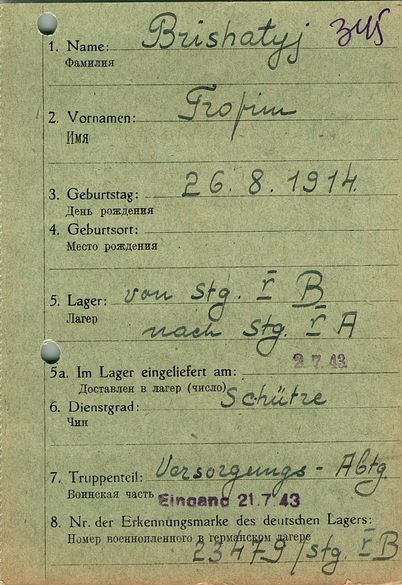 345
1. Name: Brishatyj
Фамилия
2. Vornamen: Trofim
Имя
3. Geburtstag: 26. 8. 1914.
День рождения
4. Geburtsort:
Место рождения
5. Lager: von Stg. I B
Лагер
nach Stg. I A
5a. Im Lager eingeliefert am: 2.7.43
Доставлен в лагер (число)
6. Dienstgrad: Schütze
Чин
7. Truppenteil: Versorgungs - Abtg
Воинская часть Eingang 21.7.43
8. Nr. der Erkennungsmarke des deutschen Lagers:
Номер военнопленного в германском лагере
23479/Stg. I B